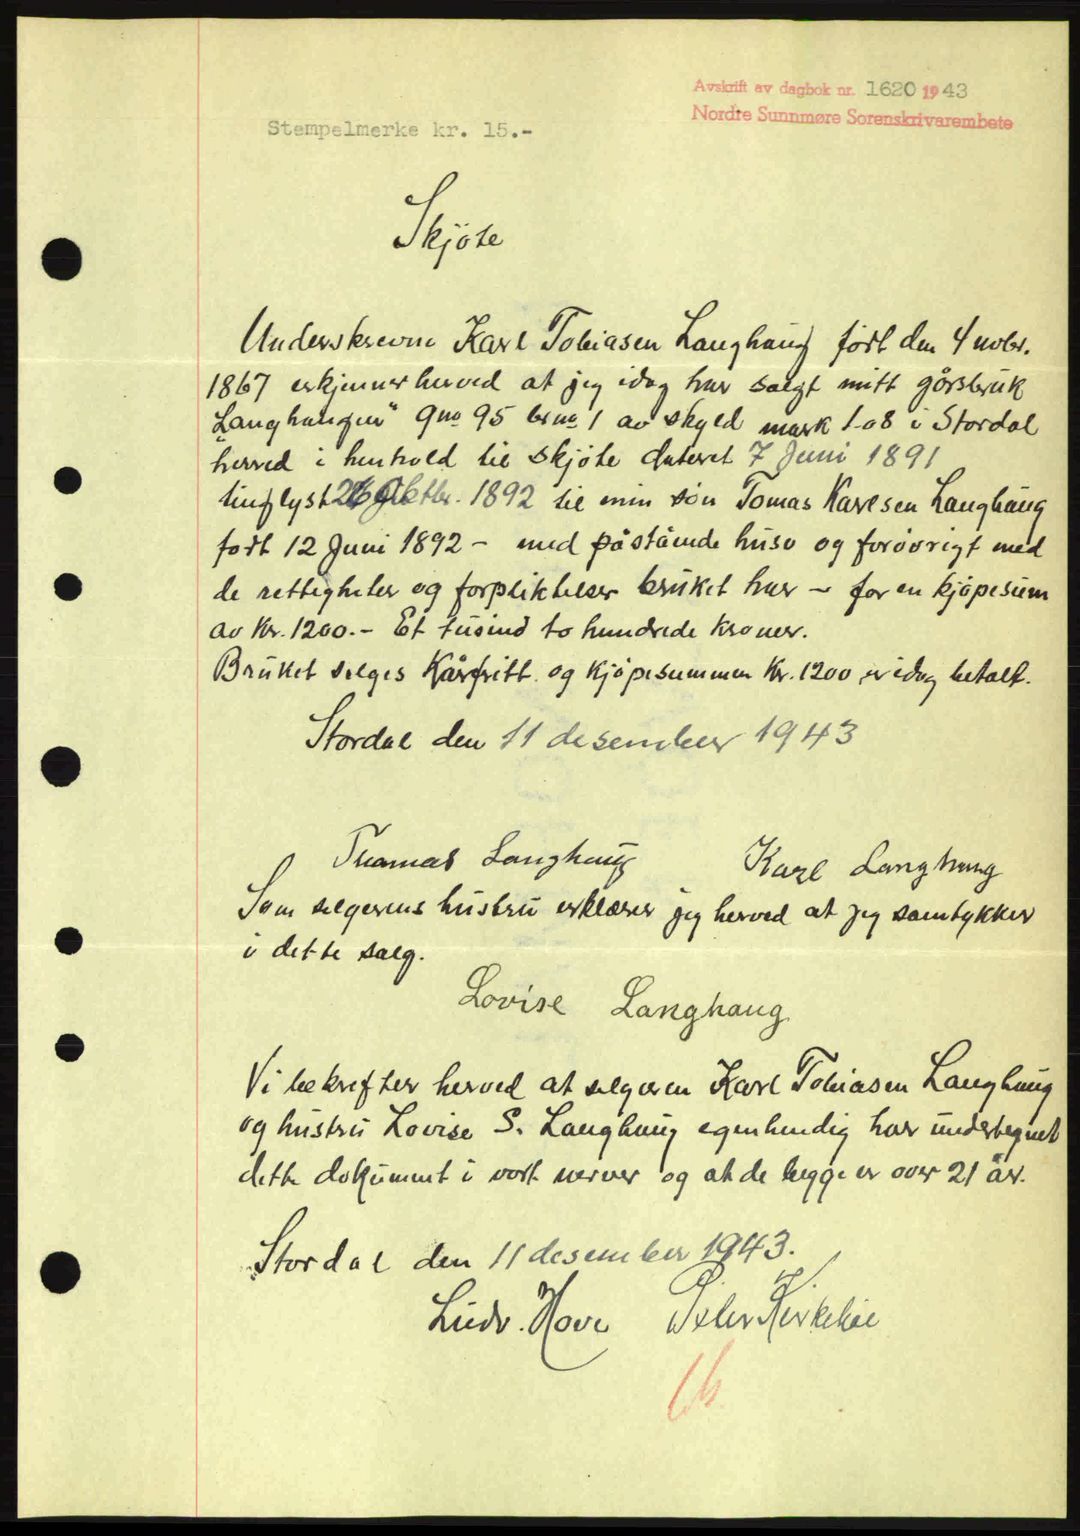 Avskrift av dagbok nr. 1620 1943
Nordre Sunnmøre Sorenskrivarembete
Stempelmerke kr. 15.-
Skjøte
Underskrevne Karl Tobiasen Langhaug født den 4 novbr.
1867 erkjenner herved at jeg idag har solgt mitt gårsbruk
"Langhaugen" gno 95 brno 1 av skyld mark 1-08 i Stordal
herred i henhold til skjøte datert 7 Juni 1891
tinglyst 26 Oktbr. 1892 til min søn Tomas Karlsen Langhaug
født 12 Juni 1892 - med påstående huse og forøvrigt med
de rettigheter og forpliktelser bruket har - for en kjøpesum
av Kr. 1200.- Et tusind to hundrede kroner.
Bruket selges Kårfritt og kjøpesummen Kr. 1200 er idag betalt.
Stordal den 11 desember 1943
Thomas Langhaug Karl Langhaug
Som selgerens hustru erklærer jeg herved at jeg samtykker
i dette salg.
Lovise Langhaug
Vi bekrefter herved at selgeren Karl Tobiasen Langhaug
og hustru Lovise S. Langhaug egenhendig har undertegnet
dette dokument i vort nerver og at de begge er over 21 år.
Stordal den 11 desember 1943.
Ludv. Hove Peter Kirkebøe